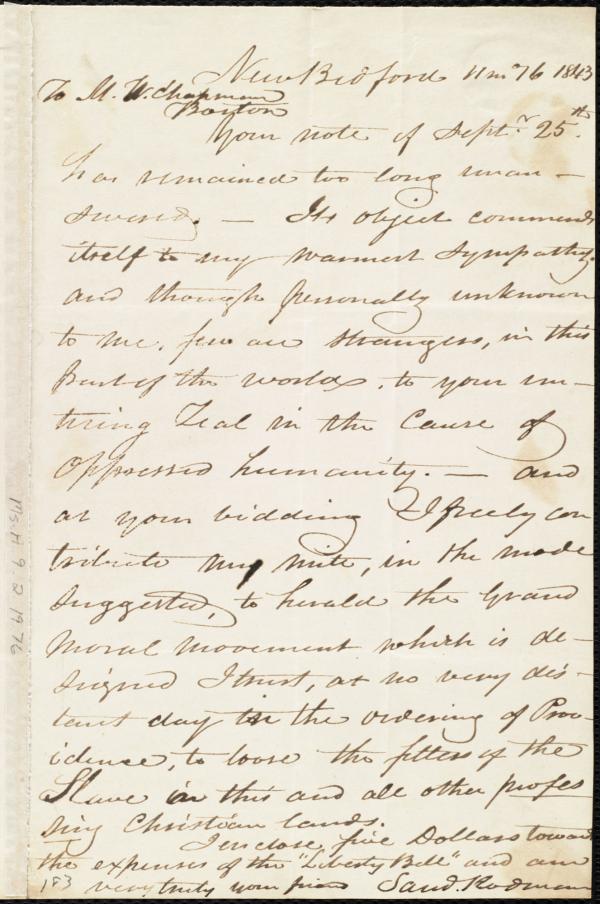 New Bedford 11 mo 16 1843
To M. W. Chapman
Boston
Your note of Septr. 25th.
has remained too long unan-
swered. — Its object commends
itself to my warmest sympathy
and though personally unknown
to me, few are strangers, in this
Part of the world, to your un-
tiring Zeal in the Cause of
Oppressed humanity. — and
at your bidding I freely con
tribute my mite, in the mode
suggested, to herald the Grand
Moral movement which is de-
signed I trust, at no very dis-
tant day in the ordering of Prov-
idence, to loose the fetters of the
Slave in this and all other profes
sing Christian lands.
I enclose five Dollars toward
the expenses of the "Liberty Bell" and am
very truly your friend Saml. Rodman
183
Ms. A 9.2 19.76